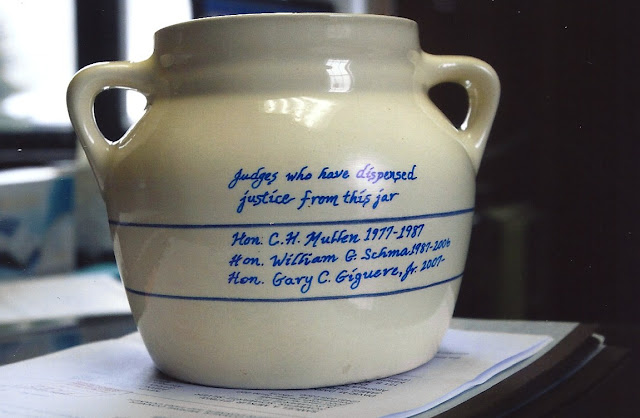 Judges who have dispensed
justice from this jar
Hon. C.H. Mullen 1977-1987
Hon. William G. Schma 1987-2006
Hon. Gary C. Giguere, Jr. 2007-